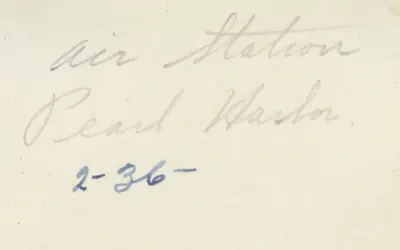 Air Station
Pearl Harbor.
2-36-